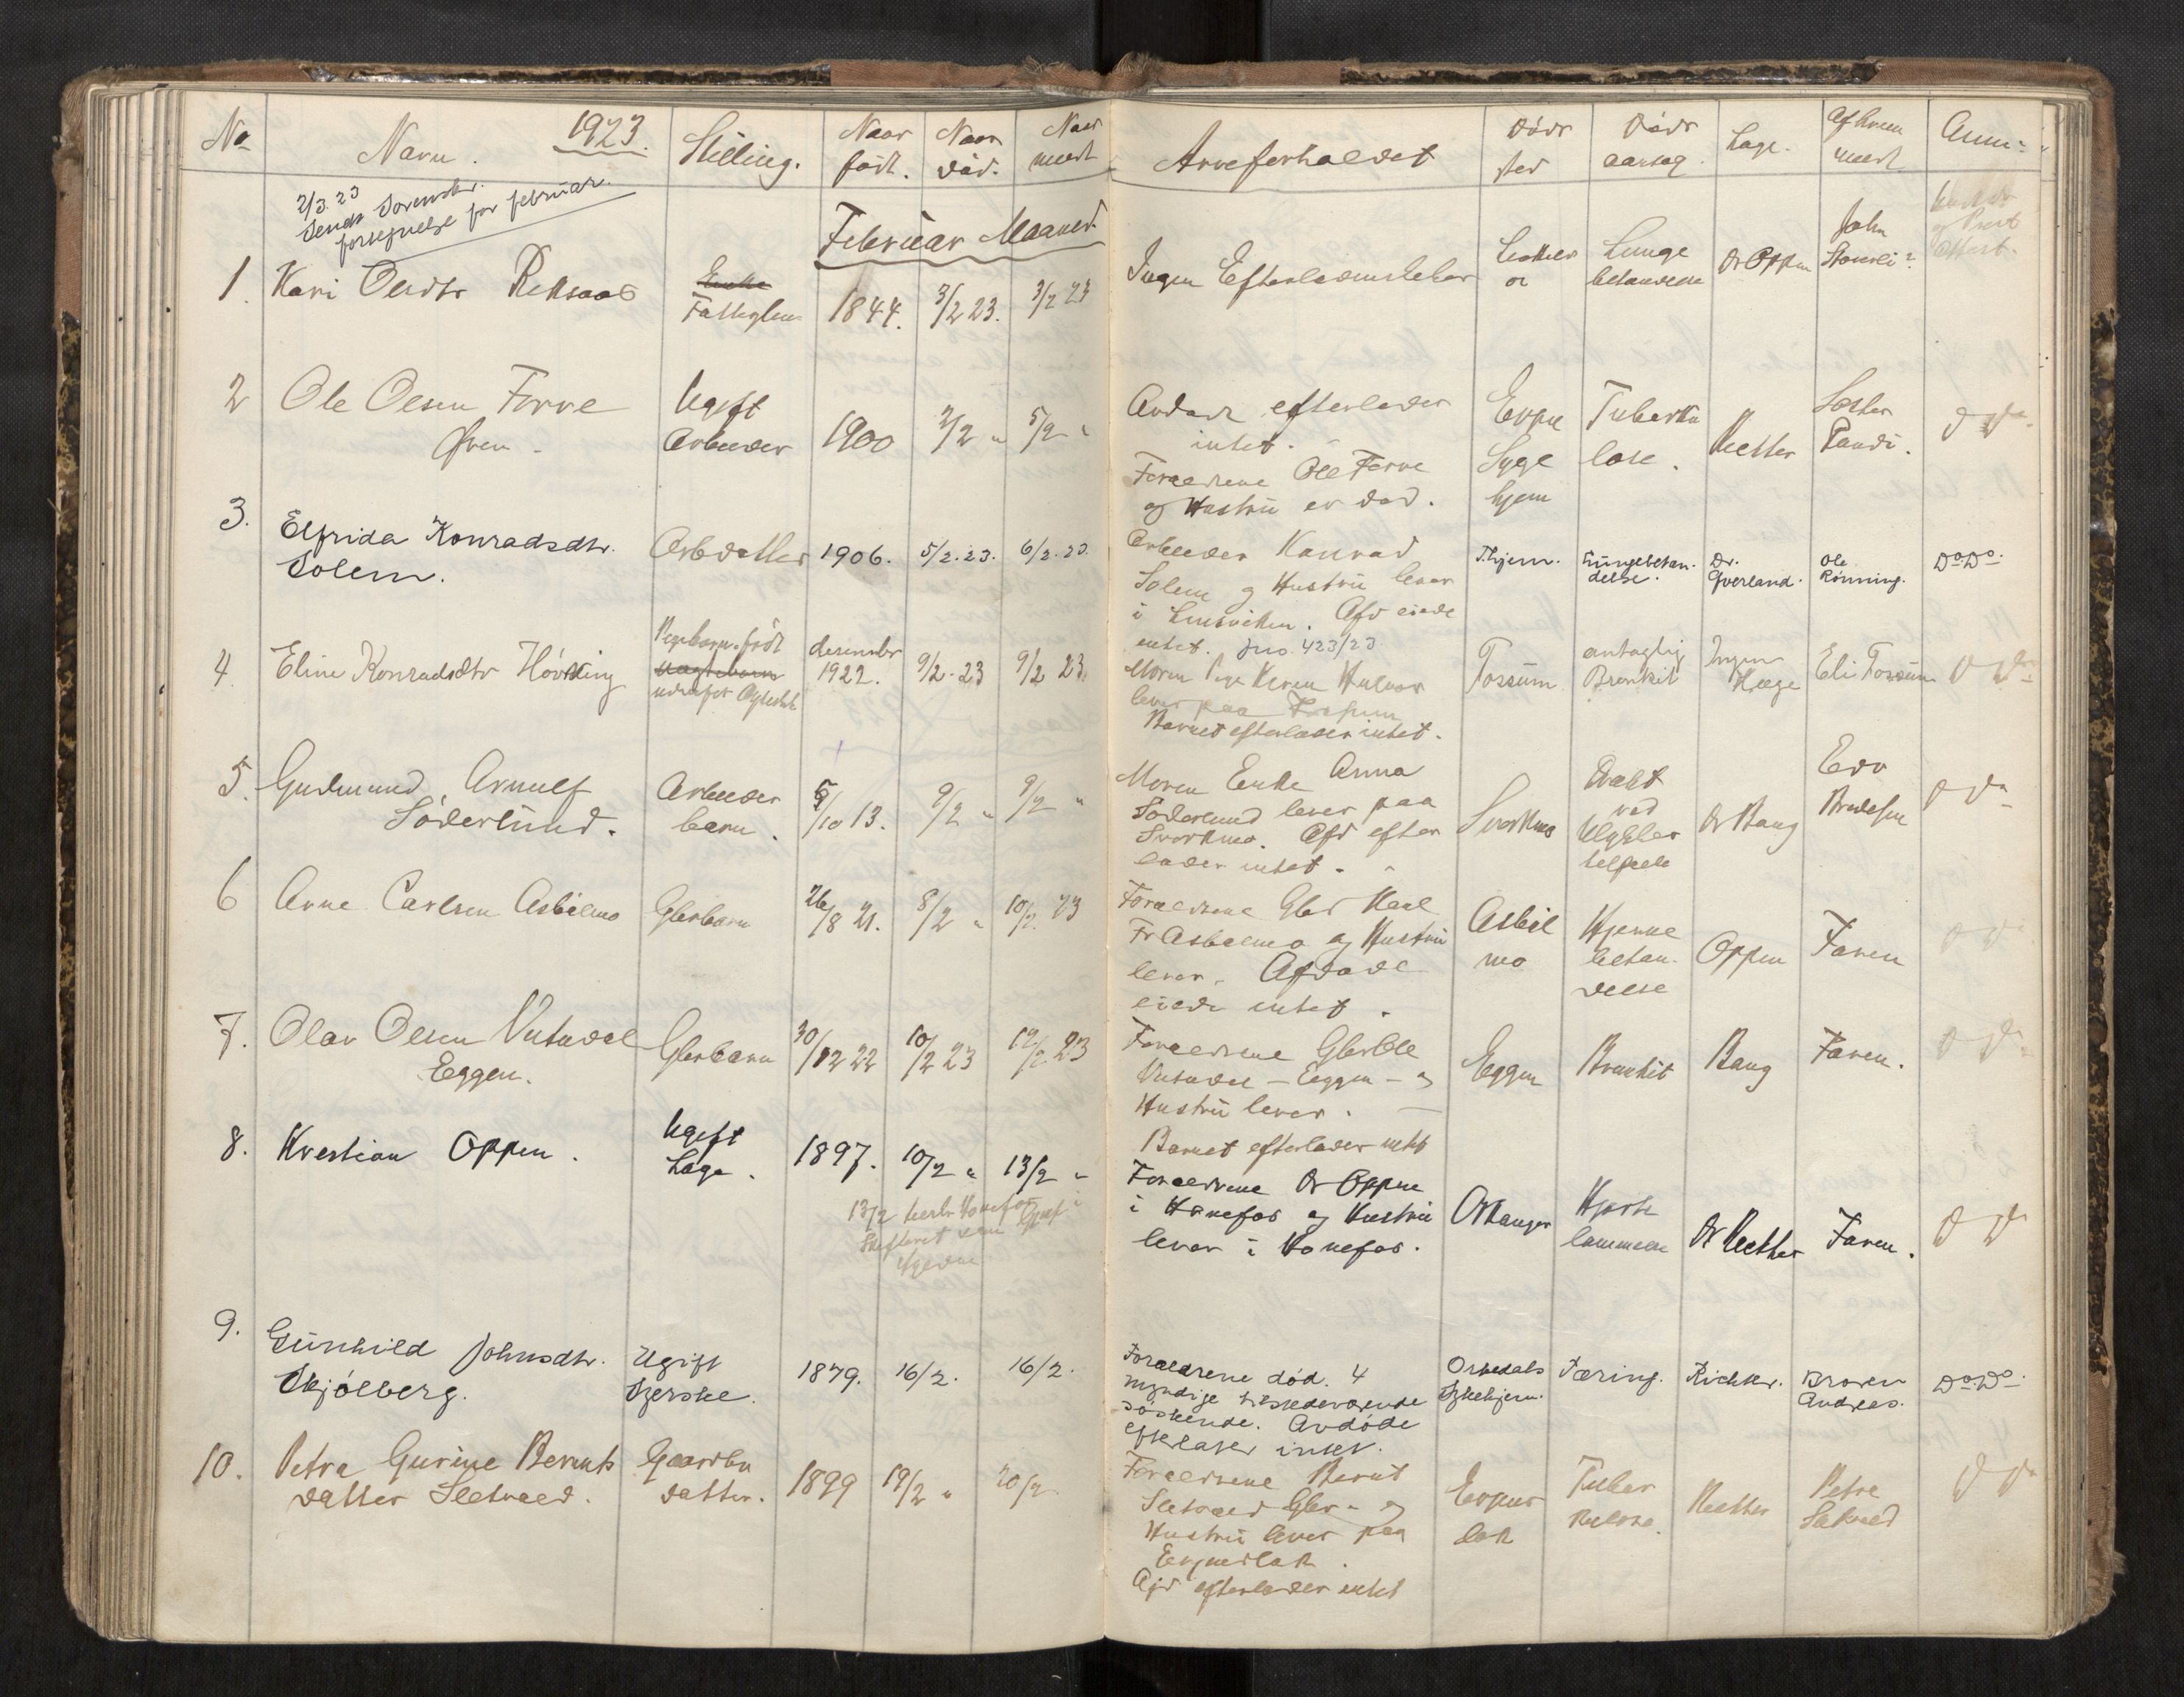 No
Navn. 1923.
Stilling.
Naar født.
Naar død.
Naar meldt
Arveforholdet
Døds sted
Døds aarsag.
Læge.
Af hvem meldt
Anm:
2/3.23
Sendt Sorenskr.
fortegnelse for februar.
Februar Maaned
1. Kari Olsdtr Reksaas
Fattiglem
1844.
3/2 23.
3/2 23
Ingen Efterladenskaber
Lunge
betændelse
Dr Oppen
John
2 Ole Olsen Forve
Øvre.
Ugift
Arbeider
1900
2/2 "
5/2 "
Avdøde efterlader
intet.
Forældrene Ole Forve
og Hustru er død.
Evju
Syge
hjem
Tuberku
lose.
Richter
Søster
Randi.
Do Do
3. Elfrida Konradsdtr.
Solem.
Arb datter
1906.
5/2.23.
6/2.23.
Arbeider Konrad
Solem og Hustru lever
i Lensviken. Afd eiede
intet. Jno. 423/23
T.hjem.
Lungebetæn-
delse.
Dr.
Gverland.
Ole
Rönning.
Do Do.
4. Eline Konradsdtr Hövding
Pigebarn. født
udenfor Ægteskab
desember
1922.
9/2.23
9/2 23.
Moren Pige
lever paa
Barnet efterlader intet.
Fossum
antaglig
Bronkit
Ingen
Læge
Eli Fossum
Do Do
5. Gudmund Arnulf
Söderlund.
Arbeider
barn.
5/10 13.
9/2 "
9/2 "
Moren Enke Anna
Söderlund lever paa
Svorkmo. Afd efter
lader intet.
Svorkmo
Dræbt
ved
Ulykkes
tilfælde
Dr Bang
Edv
Bredesen
Do Do
6 Arne Carlsen Asbölmo
Gbrbarn
26/8 21.
8/2 "
10/2 23
Forældrene Gbr Karl
Fr Asbölmo og Hustru
lever. Afdøde
eiede intet.
Asböl
mo
Hjerne
betæn-
delse
Oppen
Faren
Do Do
7. Olav Olsen Vutudal
Eggen.
Gbrbarn
30/12 22
10/2 23
12/2 23
Forældrene Gbr Ole
Vutudal – Eggen – og
Hustru lever. —
Barnet efterlader intet
Eggen
Bronkit
Bang
Faren.
Do Do
8. Kristian Oppen.
Ugift
Læge.
1897.
10/2 "
13/2 "
Forældrene Dr Oppen
i Hønefos og Hustru
lever i Hønefos.
Orkanger
Hjerte
lammelse
Dr Richter
Faren.
Do Do
9. Gunhild Johnsdtr.
Skjölberg.
Ugift
Syerske.
1879.
16/2.
16/2.
Forældrene död. 4
myndige tilstedeværende
söskende. Avdöde
efterlater intet.
Orkedals
Sykehjem.
Tæring.
Richter.
Broren
Andreas.
Do Do.
10. Petra Gurine Bernts
datter Sletvold.
Gaardbr
datter.
1899
19/2 "
20/2
Forældrene Bernt
Sletvold Gbr. og
Hustru lever paa
Evjensløk.
Afd efterlader intet
Tuber
kulose.
Richter
Petra
Sletvold
Do Do